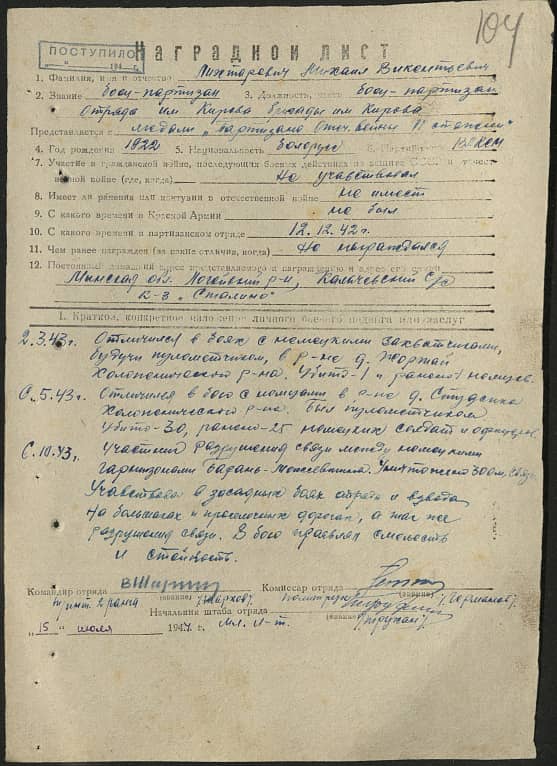 104
ПОСТУПИЛО
194 г.
Наградной лист
1. Фамилия, имя и отчество Лихтарович Михаил Викентьевич
2. Звание Боец-партизан 3. Должность, часть Боец-партизан
Отряда им Кирова бригады им Кирова
Представляется к медали „Партизана Отеч. войны II степени"
4. Год рождения 1922 5. Национальность Белорус 6. Партийность ВЛКСМ
7. Участие в гражданской войне, последующих боевых действиях по защите СССР и отечест-
венной войне (где, когда) Не участвовал
8. Имеет ли ранения или контузии в отечественной войне не имеет
9. С какого времени в Красной Армии не был
10. С какого времени в партизанском отряде 12.12.42 г.
11. Чем ранее награжден (за какие отличия, когда) Не награждался
12. Постоянный домашний адрес представляемого к награждению и адрес его семьи
Минская обл. Логойский р-н, Калачевский С/с
к-з „Сталино"
1. Краткое, конкретное изложение личного боевого подвига или заслуг
2.3.43 г. Отличился в боях с немецкими захватчиками,
будучи пулеметчиком, в р-не д. Жортай
Холопенического р-на. Убито-1 и ранено немцев.
5.43 г. Отличился в бою с немцами в р-не д. Студенка
Холопенического р-на. Был пулеметчиком
Убито-30, ранено-25 немецких солдат и офицеров
10.43 г. Участник разрушения связи между немецкими
гарнизонами Уничтожено 300 м. связи
Участвовал в засадных боях отряда и взвода
на большаках и проселочных дорогах, а так же
разрушения связи. В бою проявлял смелость
и стойкость.
Командир отряда (звание) Комиссар отряда (звание)
2 ранга
Начальник штаба отряда
(звание)
„15" июля 1944 г. мл. л-т.